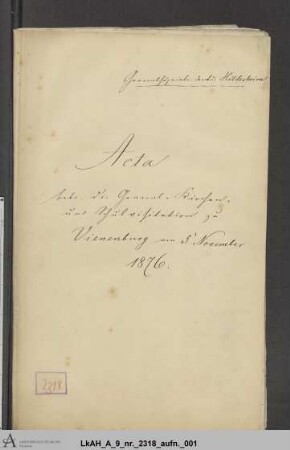 Generalspecialia Hildesheim
Acta
betr. die General-Kirchen-
und Schulvisitation zu
Vienenburg am 5 November
1876.
2318
LkAH_A_9_nr._2318_aufn._001